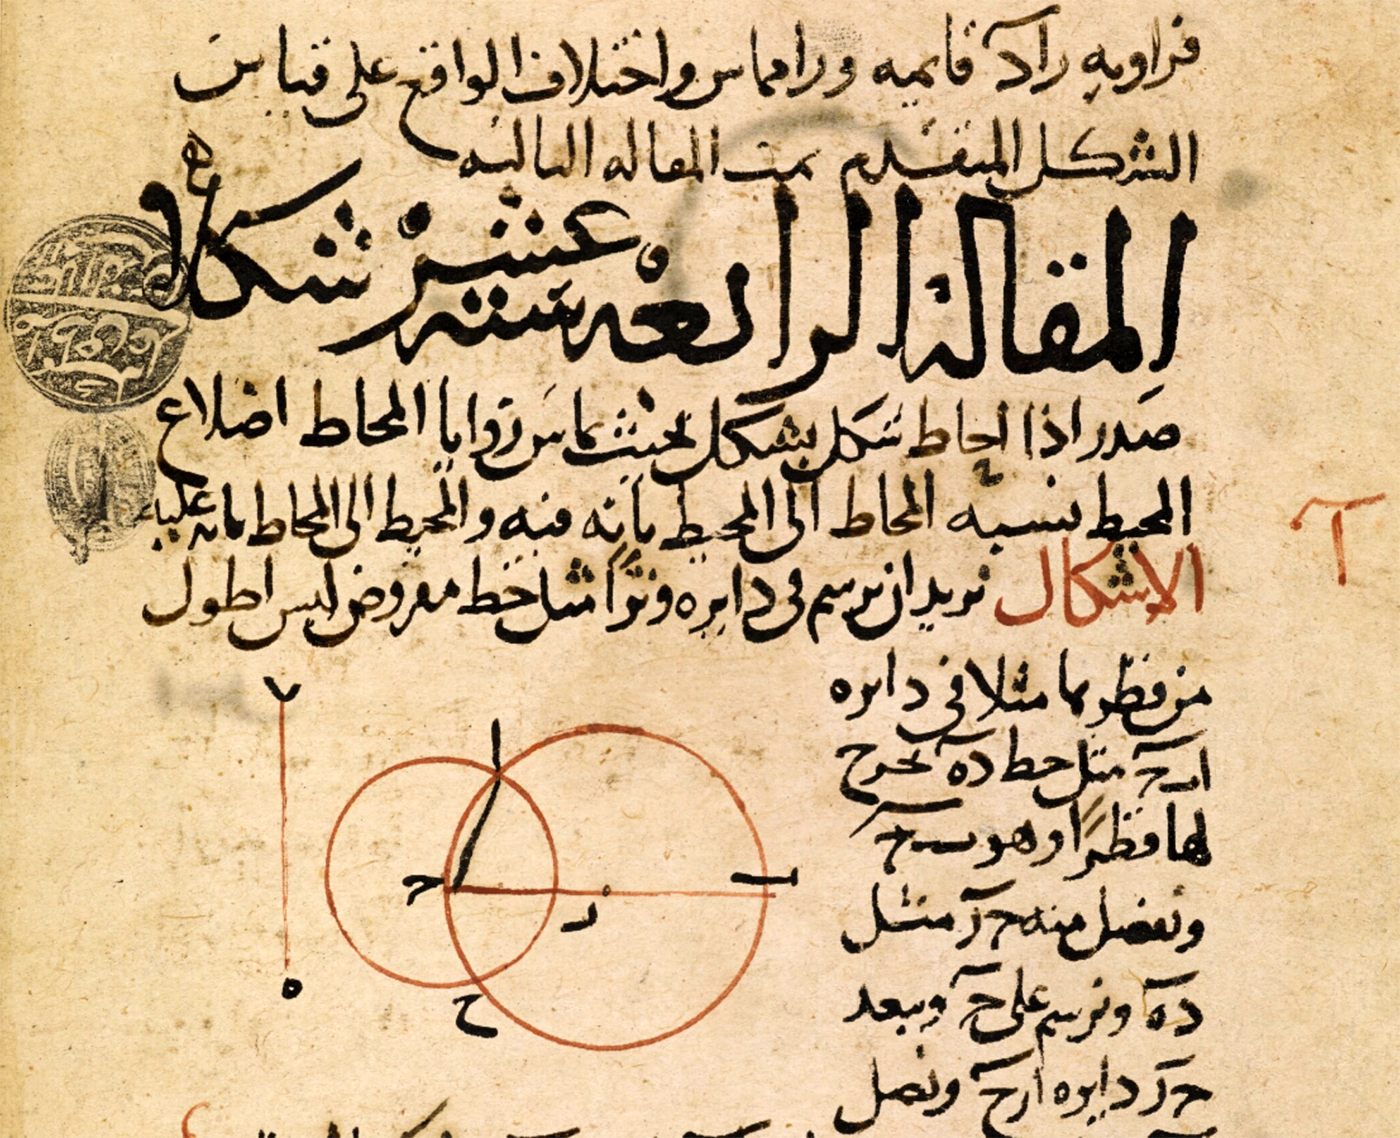 فزاويه راد قايمه ورا مماس واختلاف الواقع على قياس
الشكل المتقدم تمت المقاله الثالثه
المقالة الرابعة ستة عشر شكلا
صدر اذا احاط شكل بشكل بحيث يماس زوايا المحاط اضلاع
المحيط نسبه المحاط الى المحيط بانه فيه والمحيط الى المحاط بانه عليه
الاشكال نريد ان نرسم فى دايره وترا مثل خط مفروض ليس اطول
ا
من قطرها مثلا فى دايره
ابح مثل خط ده نخرج
لها قطرا وهو بح
ونفصل منه حر مثل
ده ونرسم على ح وببعد
حر دايره ارح ونصل
د
ا
ح
ب
ر
ه
ح